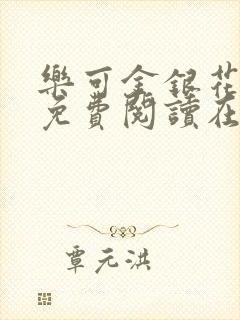 樂可金銀花
免費閱讀在
覃元洪